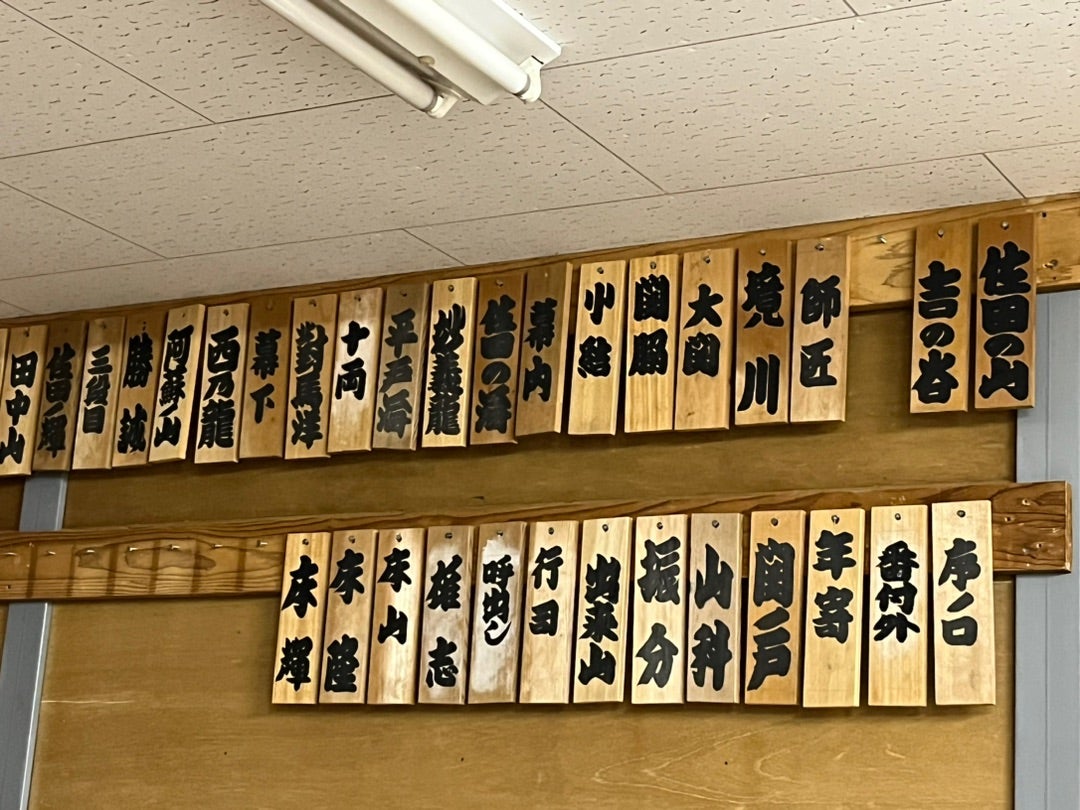 佐田の山
吉の谷
師匠
境川
大関
関脇
小結
幕内
佐田の海
妙義龍
平戸海
十両
對馬洋
幕下
西乃龍
阿蘇ノ山
勝誠
三段目
佐田ノ輝
田中山
序ノ口
番付外
年寄
関ノ戸
山科
振分
出来山
行司
呼出シ
雄志
床山
床隆
床輝